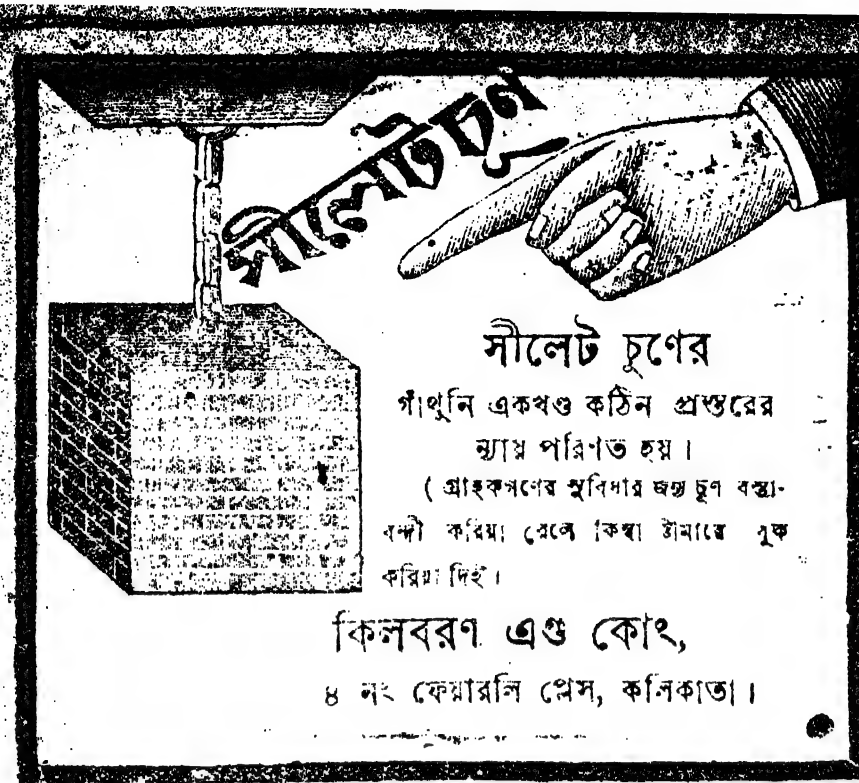 সীলেটচূণ
সীলেট চূণের
গাঁথুনি একখণ্ড কঠিন প্রস্তরের
ন্যায় পরিণত হয়।
( গ্রাহকগণের সুবিধার জন্য চূণ বস্তা-
বন্দী করিয়া রেলে কিম্বা ষ্টীমারে বুক
করিয়া দিই।
কিলবরণ এণ্ড কোং,
৪ নং ফেয়ারলি প্লেস, কলিকাতা।